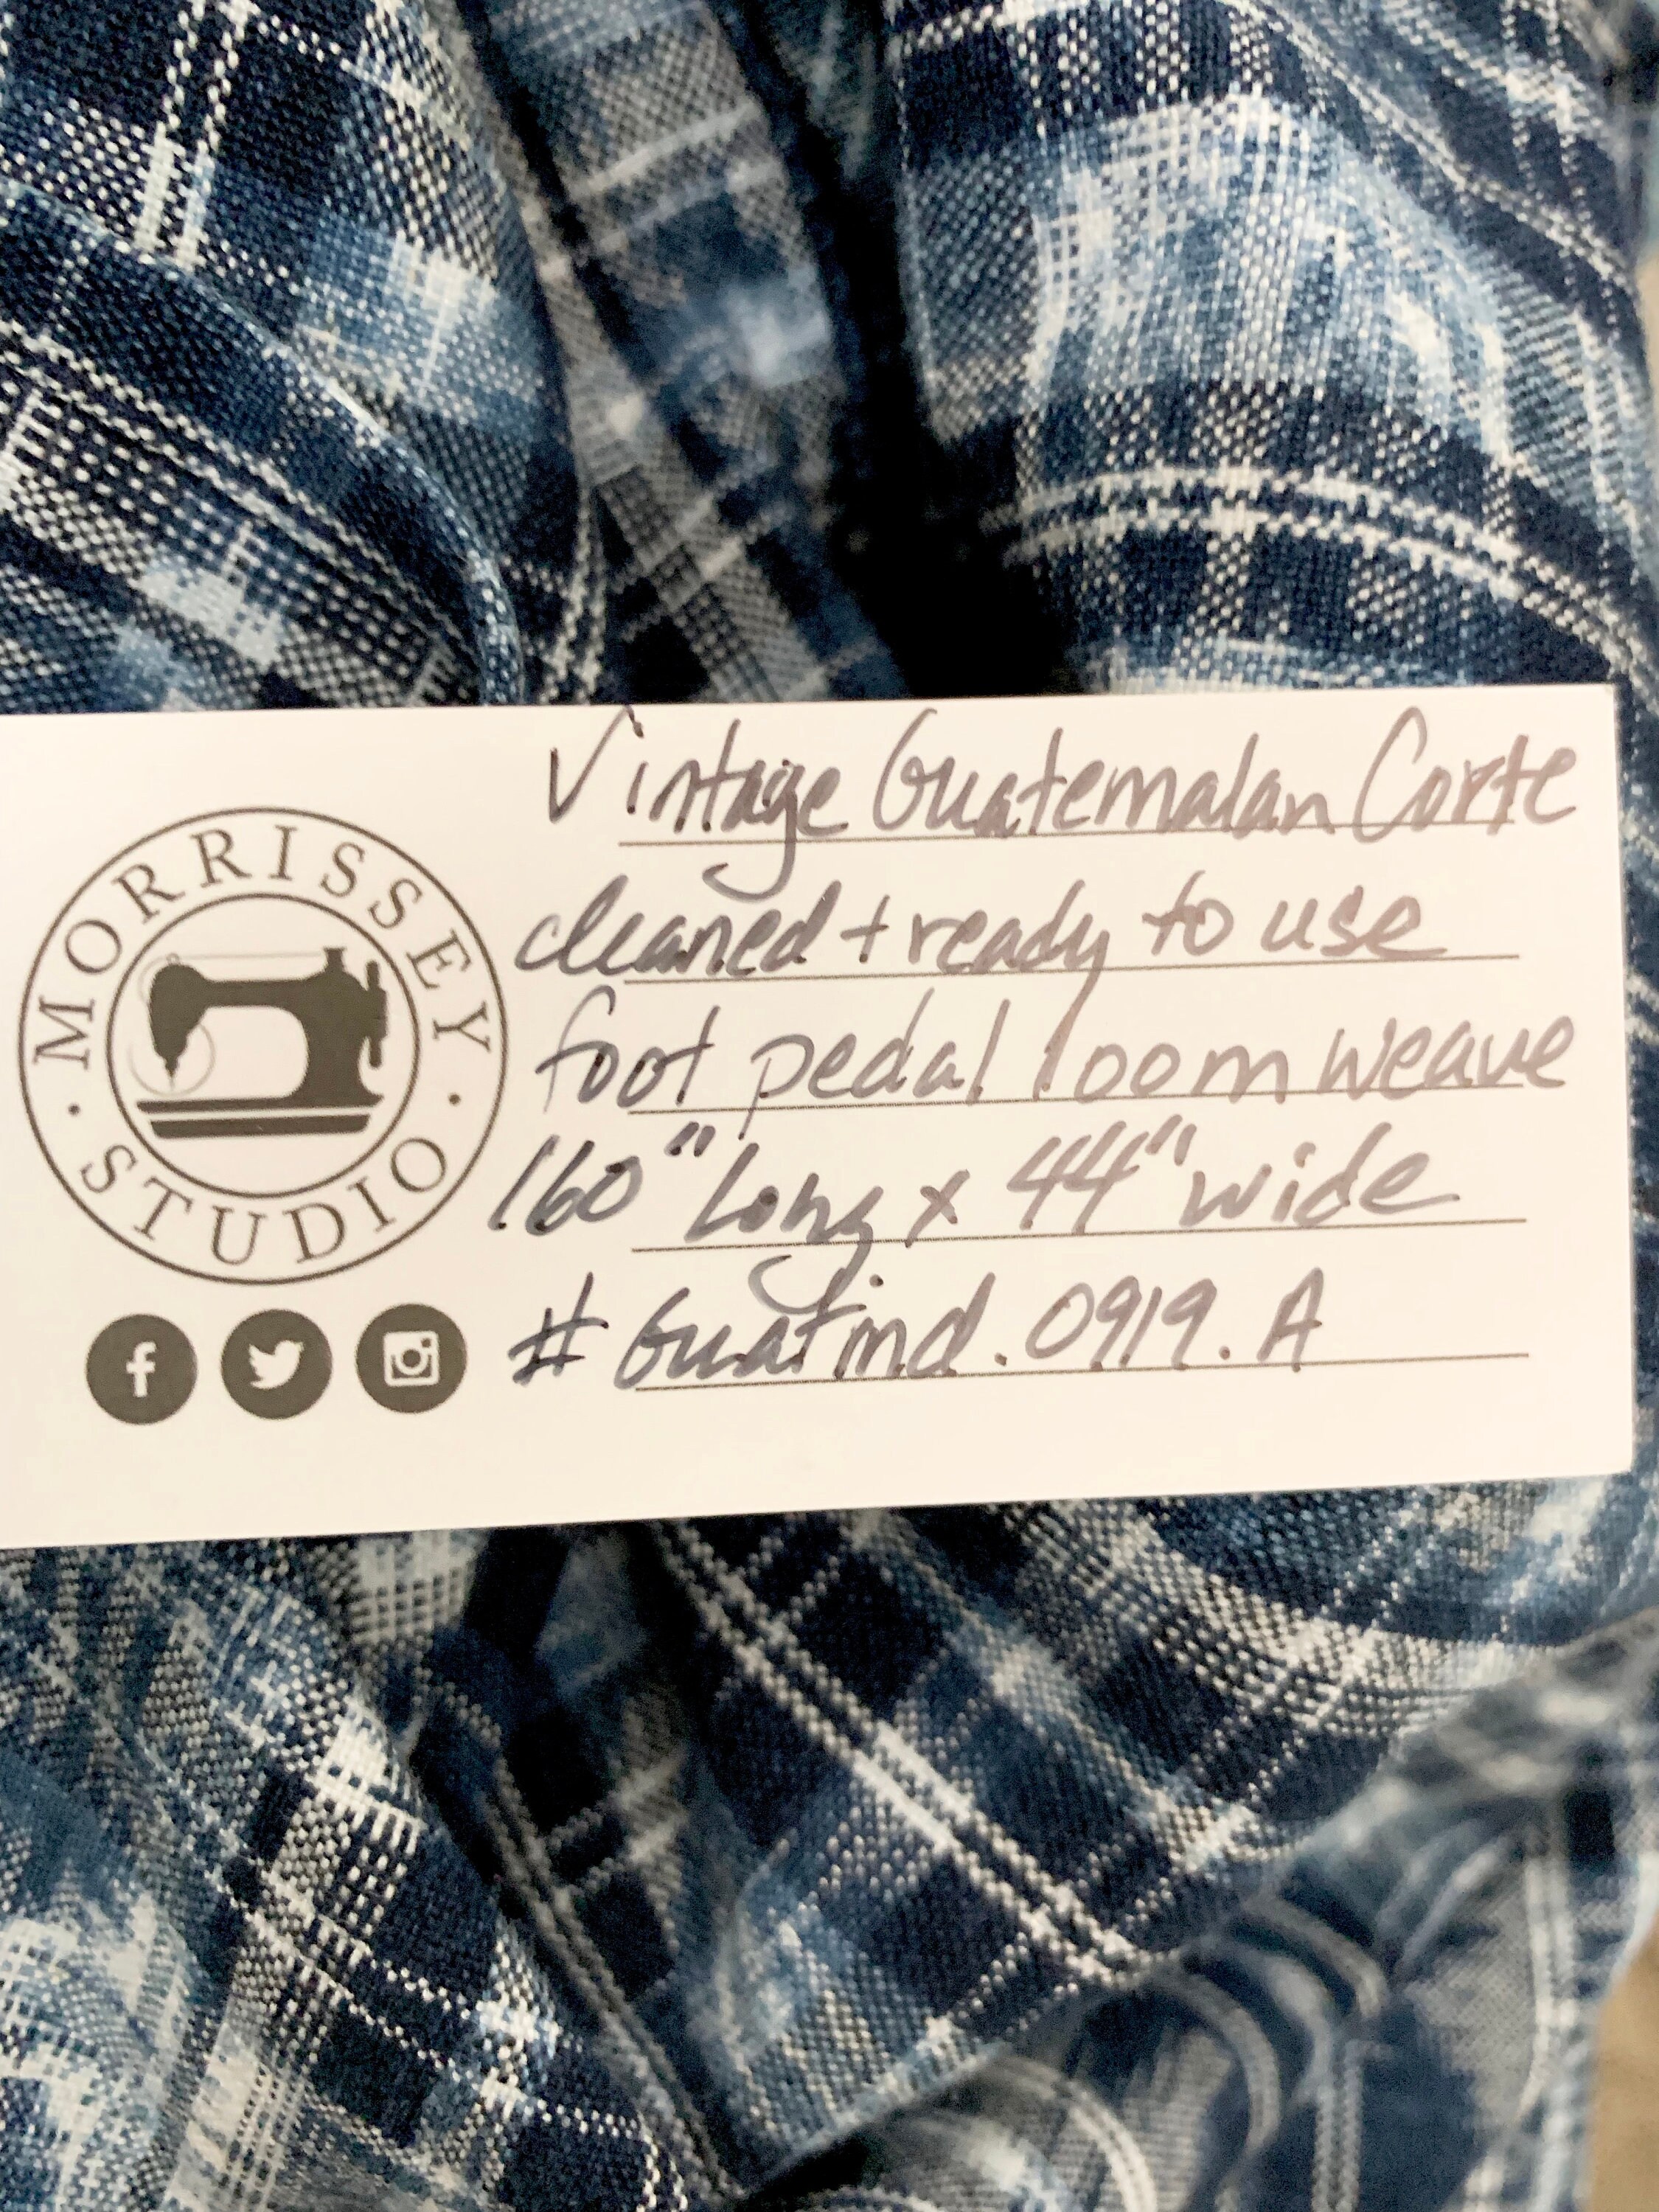 MORRISSEY
· STUDIO ·
Vintage Guatemalan Corte
cleaned + ready to use
foot pedal loom weave
160" Long x 44" wide
# Guatind. 0919. A